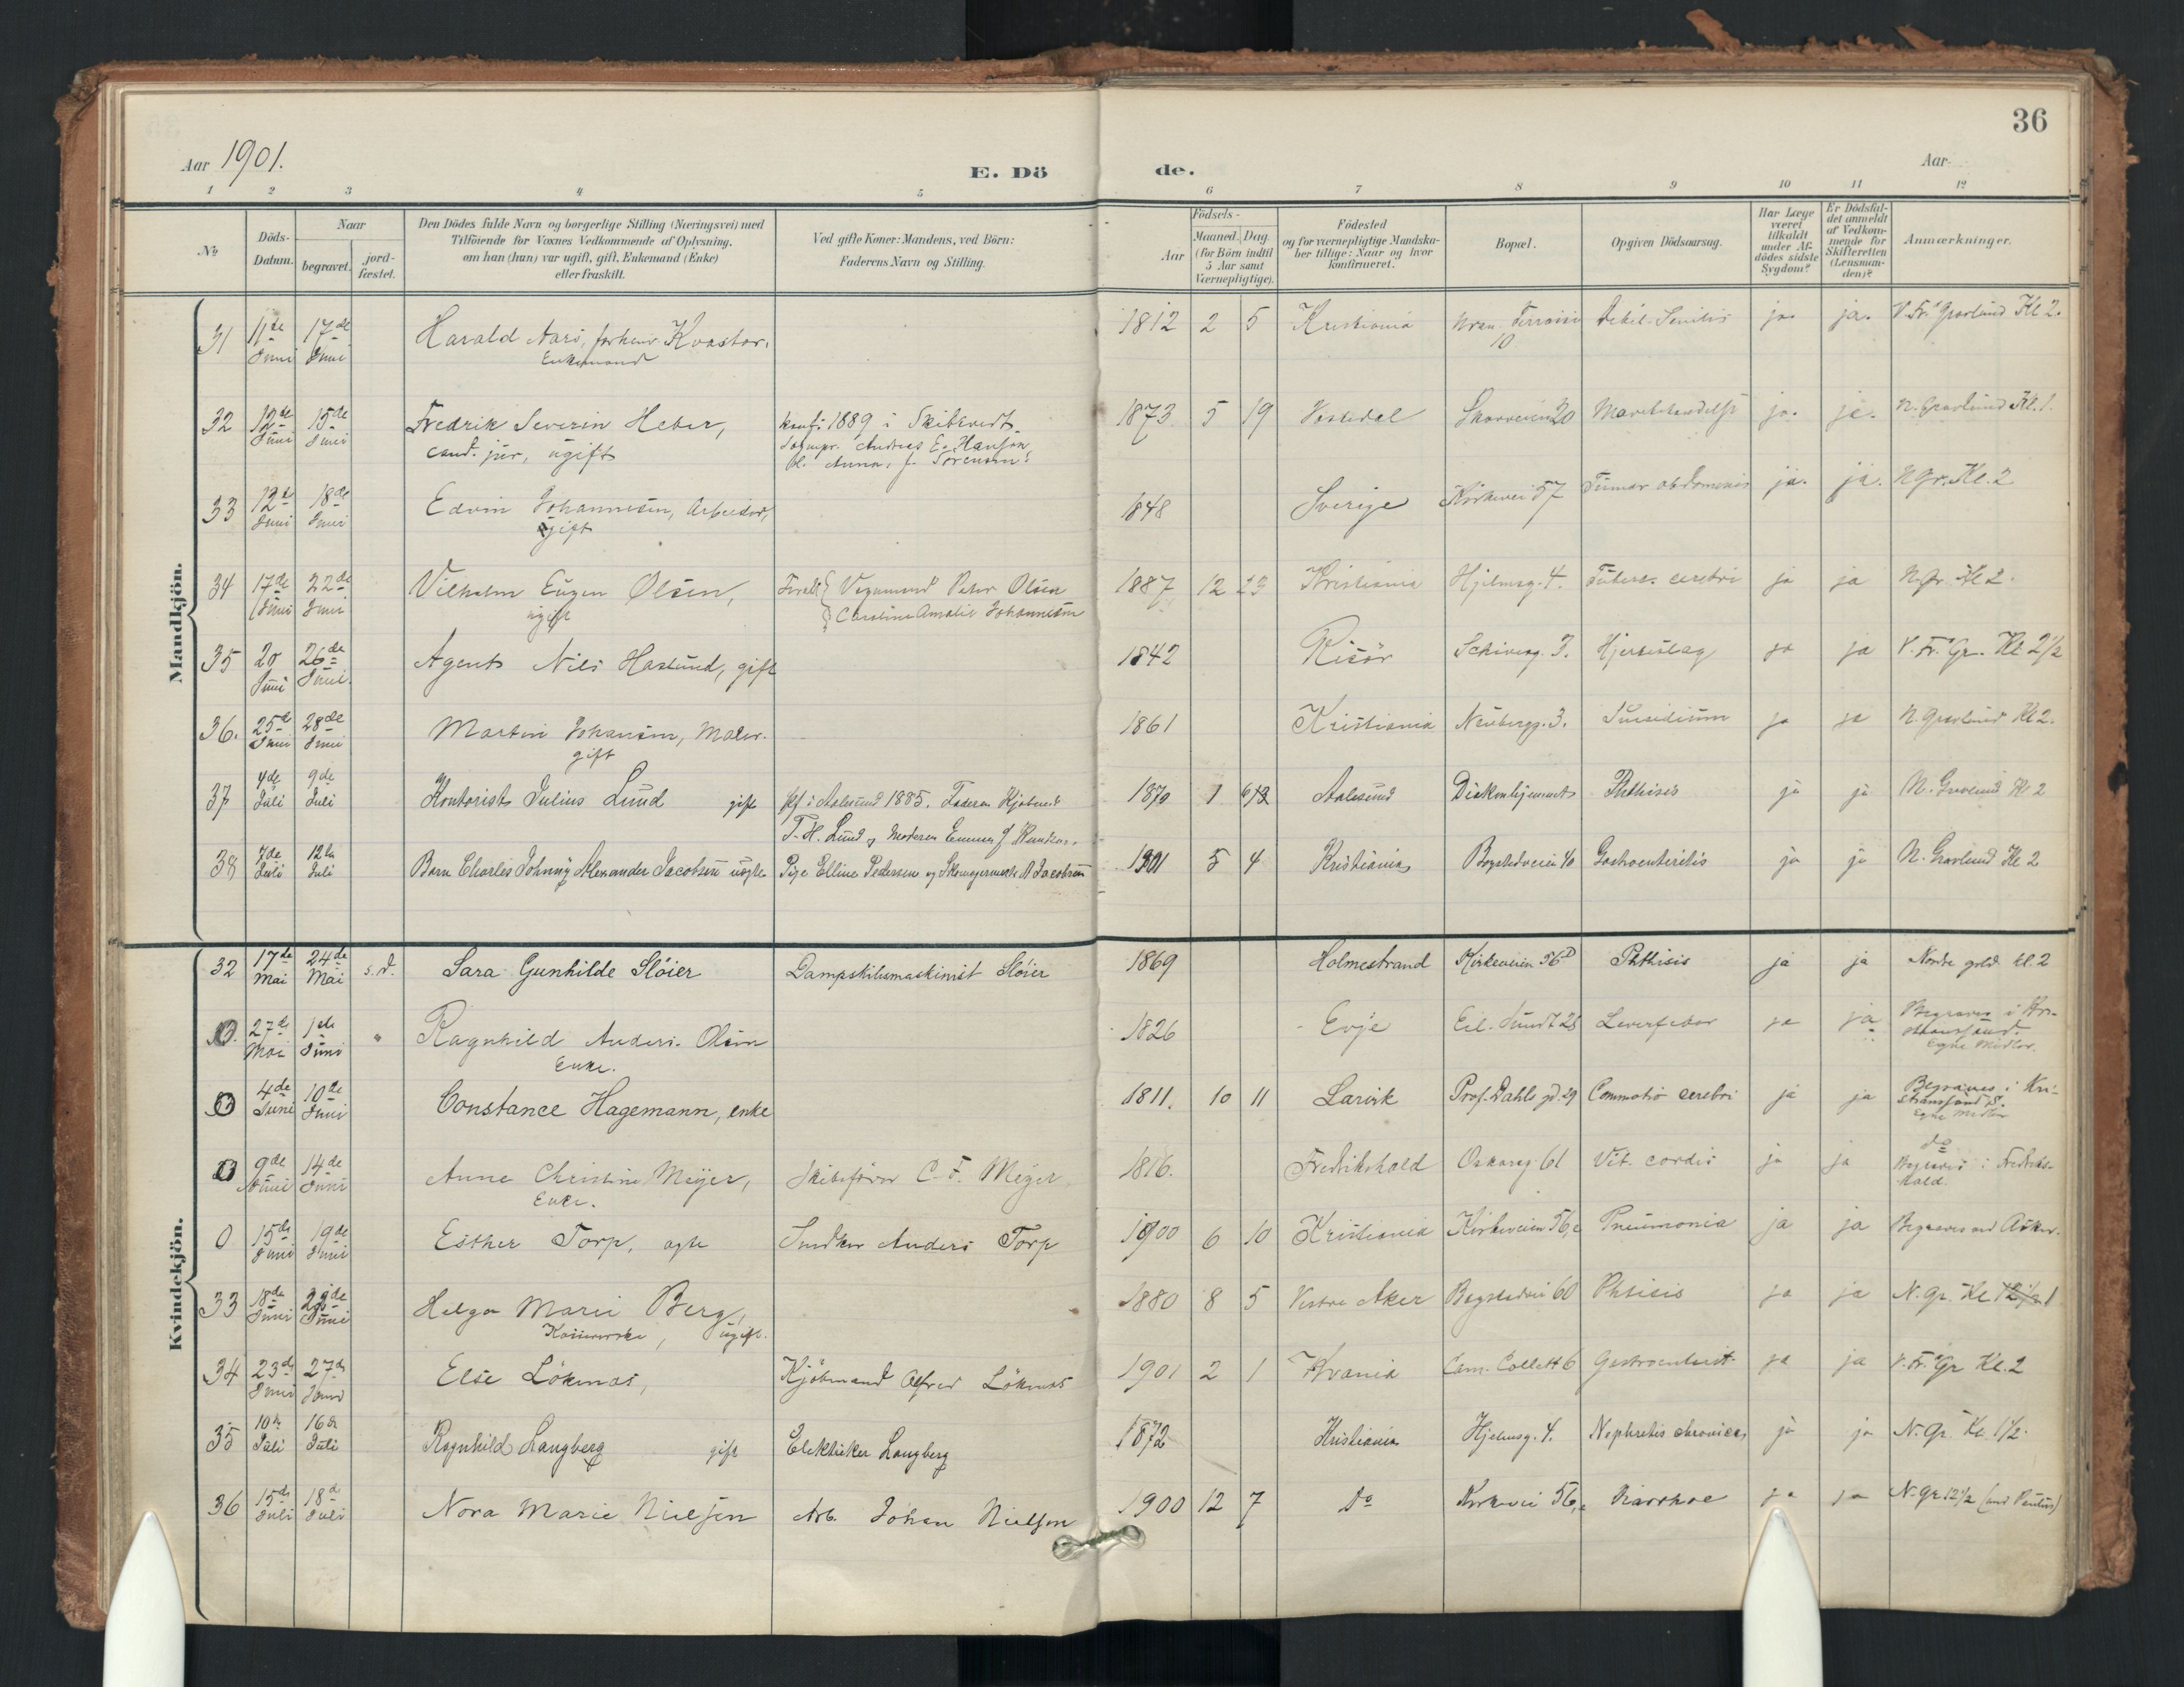 36
Aar 1901.
E. Dö
de.
Aar
1 2 3 4 5 6 7 8 9 10 11 12
No
Döds-Datum.
Naar
begravet.
jord-fæstet.
Den Dödes fulde Navn og borgerlige Stilling (Næringsvei) med
Tilföiende for Voxnes Vedkommende af Oplysning,
om han (hun) var ugift, gift, Enkemand (Enke)
eller fraskilt.
Ved gifte Koner: Mandens, ved Börn:
Faderens Navn og Stilling.
Födsels-
Aar
Maaned. Dag.
(for Börn indtil
5 Aar samt
Værnepligtige).
Födested
og for værnepligtige Mandska-
ber tillige: Naar og hvor
konfirmeret.
Bopæl.
Opgiven Dödsaarsag.
Har Læge
været
tilkaldt
under Af-
dödes sidste
Sygdom?
Er Dödsfal-
det anmeldt
af Vedkom-
mende for
Skifteretten
(Lensman-
den)?
Anmærkninger.
Mandkjön.
31 11de Juni 17de Juni Harald Aars, forhenv. Kvæstor. Enkemand 1812 2 5 Kristiania 10 Debil. Senilis ja. ja. V. Fr. Gravlund Kl 2.
32 12de Juni 15de Juni Fredrik Severin Heber, cand. jur, ugift konf. 1889 i Andreas E. Hansen Anna, f. Sörensen. 1873 5 19 20 ja. ja. N. Gravlund Kl. 1.
33 12te Juni 18de Juni Edvin Johannesen, Arbeider, gift 1848 Sverige Kirkevei 57 Tumor abdominis ja. ja. N Gr. Kl. 2
34 17de Juni 22de Juni Vilhelm Eugen Olsen, ugift Peter Olsen Caroline Amalie Johannesen 1887 12 23 Kristiania Hjelmsg. 4. Tuberc. cerebri ja ja N. Gr. Kl 2.
35 20 Juni 26de Juni Agent Nils Haslund, gift 1842 Risör Schivesg. 3. Hjerteslag ja ja V. Fr. Gr. Kl 2 1/2
36. 25de Juni 28de Juni Martin Johansen, Maler. gift 1861 Kristiania Neubergg. 3. Suicidium ja ja N. Gravlund Kl 2.
37 4de Juli 9de Juli Kontorist Julius Lund gift kf i Aalesund 1885. Faderen Kjöbmd T. H. Lund og Moderen Emma f Knudsen. 1870 1 Aalesund Diakonhjemmet Phthisis ja ja N. Gravlund Kl 2
38 7de Juli 12te Juli Barn Charles Johnny Alexander Jacobsen uægte Pige Elline Pedersen og Skomagermester A Jacobsen 1901 5 4 Kristiania Bogstadveien 40 Gastroenteritis ja ja N. Gravlund Kl 2
Kvindekjön.
32 17de Mai 24de Mai s. d. Sara Gunhilde Slöier Dampskibsmaskinist Slöier 1869 Holmestrand Kirkeveien 56D Phthisis ja ja Nordre grld. kl. 2
0. 27de Mai 1ste Juni " Ragnhild Anders. Olsen Enke. 1826 Evje Eil. Sundt 28 Leverfeber ja ja Begraves i Kri-stianssand. Egne Midler.
0 4de Juni 10de Juni Constance Hagemann, enke 1811. 10 11 Larvik Prof. Dahls gd. 29 Commotio cerebri ja ja Begraves i Kri-stianssand S. Egne Midler
0 9de Juni 14de Juni Anne Christine Meyer, Enke. Skibsförer C. F. Meyer 1816. Fredrikshald Oskarsg. 61 Vit. cordis ja ja do Begraves i Fredriks-hald.
0 15de Juni 19de Juni Esther Torp, ægte Snedker Anders Torp 1900 6 10 Kristiania Kirkeveien 56, c Pneumonia ja ja Begraves ved Asker.
33 18de Juni 22de Juni Helga Marie Berg, ugift. 1880 8 5 Vestre Aker Bogstadvei 60 Phtisis ja ja N. Gr. Kl 1
34 23de Juni 27de Juni Else Lökenæs, Kjöbmand Alfred Lökenæs 1901 2 1 Krania Cam. Collett 6 Gastroenterit. ja ja V. Fr. Gr Kl. 2
35 10de Juli 16de Juli Ragnhild Langberg gift Elektriker Langberg 1872 Kristiania Hjelmsg. 4. Nephritis chronica ja ja N. Gr. Kl 1 1/2.
36 15de Juli 18de Juli Nora Marie Nielsen Arb. Johan Nielsen 1900 12 7 Do Kirkevei 56, c Diarrhoe ja ja N. Gr 12 1/2